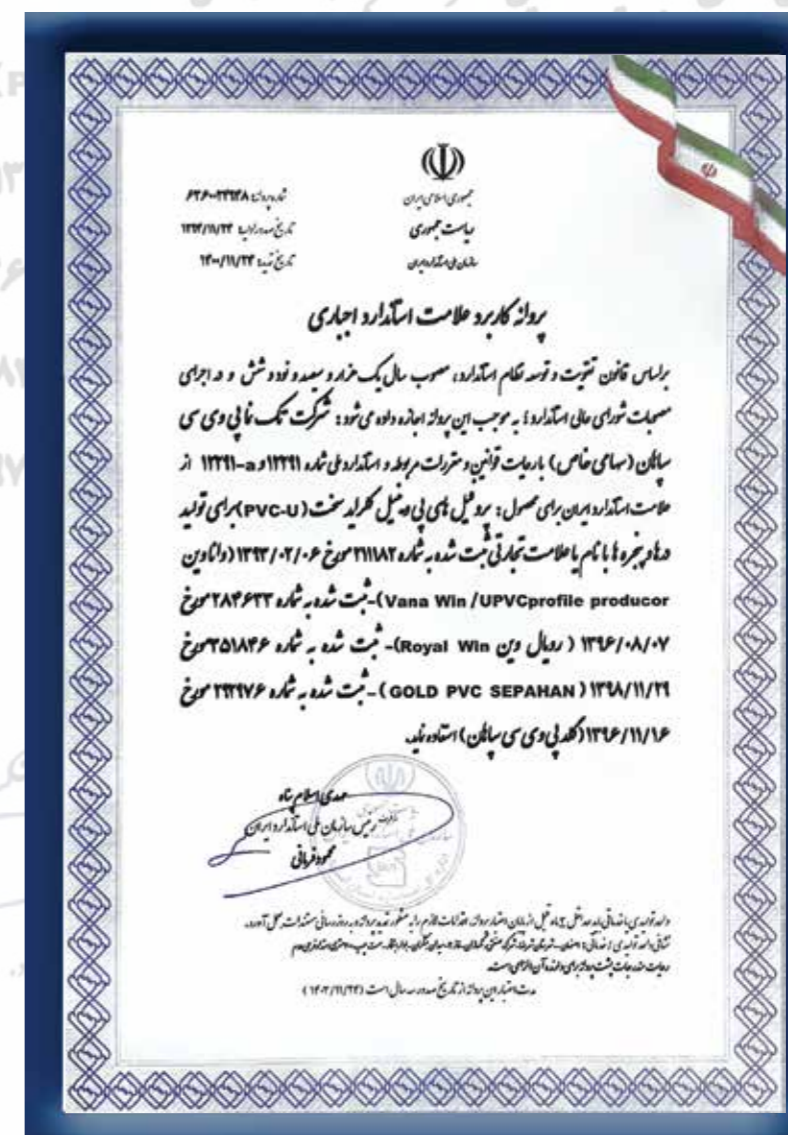 جمهوری اسلامی ایران
ریاست جمهوری
سازمان ملی استاندارد ایران
شماره پروانه: ۶۳۶۰۰۲۴۹۴۸
تاریخ صدور اولیه: ۱۳۹۴/۱۱/۲۴
تاریخ تمدید: ۱۴۰۰/۱۱/۲۴
پروانه کاربرد علامت استاندارد اجباری
براساس قانون تقویت و توسعه نظام استاندارد، مصوب سال یک هزار و سیصد و نود و شش و در اجرای
مصوبات شورای عالی استاندارد؛ به موجب این پروانه اجازه داده می شود: شرکت تک نما پی وی سی
سپاهان (سهامی خاص) با رعایت قوانین و مقررات مربوطه و استاندارد ملی شماره ۱۲۲۹۱ و ۱۲۲۹۱-a از
علامت استاندارد ایران برای محصول: پروفیل های پی وینیل کلراید سخت (PVC-U) برای تولید
درها و پنجره ها با نام یا علامت تجارتی ثبت شده به شماره ۲۱۱۱۸۲ مورخ ۱۳۹۳/۰۲/۰۶ (وانا وین
Vana Win /UPVCprofile producor)-ثبت شده به شماره ۲۸۴۶۳۳ مورخ
۱۳۹۶/۰۸/۰۷ ( رویال وین Royal Win)- ثبت شده به شماره ۳۵۱۸۴۶ مورخ
۱۳۹۸/۱۱/۲۹ ( GOLD PVC SEPAHAN )- ثبت شده به شماره ۲۹۲۹۷۶ مورخ
۱۳۹۶/۱۱/۱۶ (گلد پی وی سی سپاهان) استفاده نماید.
مهدی اسلام پناه
رئیس سازمان ملی استاندارد ایران
محمود قربانی
واحد تولیدی یا خدماتی باید حداقل ۲ ماه قبل از پایان اعتبار پروانه، اقدامات لازم را به منظور تمدید پروانه و به روز رسانی مستندات به عمل آورد.
رعایت مندرجات پشت پروانه برای دارنده آن الزامی است.
مدت اعتبار این پروانه از تاریخ صدور سه سال است (۱۴۰۳/۱۱/۲۴)